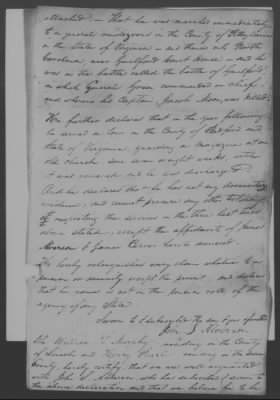 attached — That he was marched immediately
to a general rendezvous in the County of
in the State of Virginia — and thence into North
Carolina, near Guilford Court House — and he
was in the battle called the battle of Guilford
in which General Green commanded in chief,
and wherein his Captain, Jacob Moon, was killed
He further declares that in the year following
he served a tour in the County of Bedford and
State of Virginia, guarding a magazine at an
old church some seven or eight weeks, until
it was removed and he was discharged
And he declares that he has not any documentary
evidence, and cannot procure any other testimony
respecting the services in the three last tours
above stated, except the affidavits of James
& James hereto annexed.
He hereby relinquishes every claim whatever to a
pension or annuity except the present, and declares
that his name is not on the pension roll of the
agency of any State.
Sworn to & subscribed the day & year aforesaid
John S.
We William residing in the County
of Lincoln and Henry residing in the same
County, hereby certify, that we are well acquainted
with John S. who has subscribed & sworn to
the above declaration and that we believe him to be